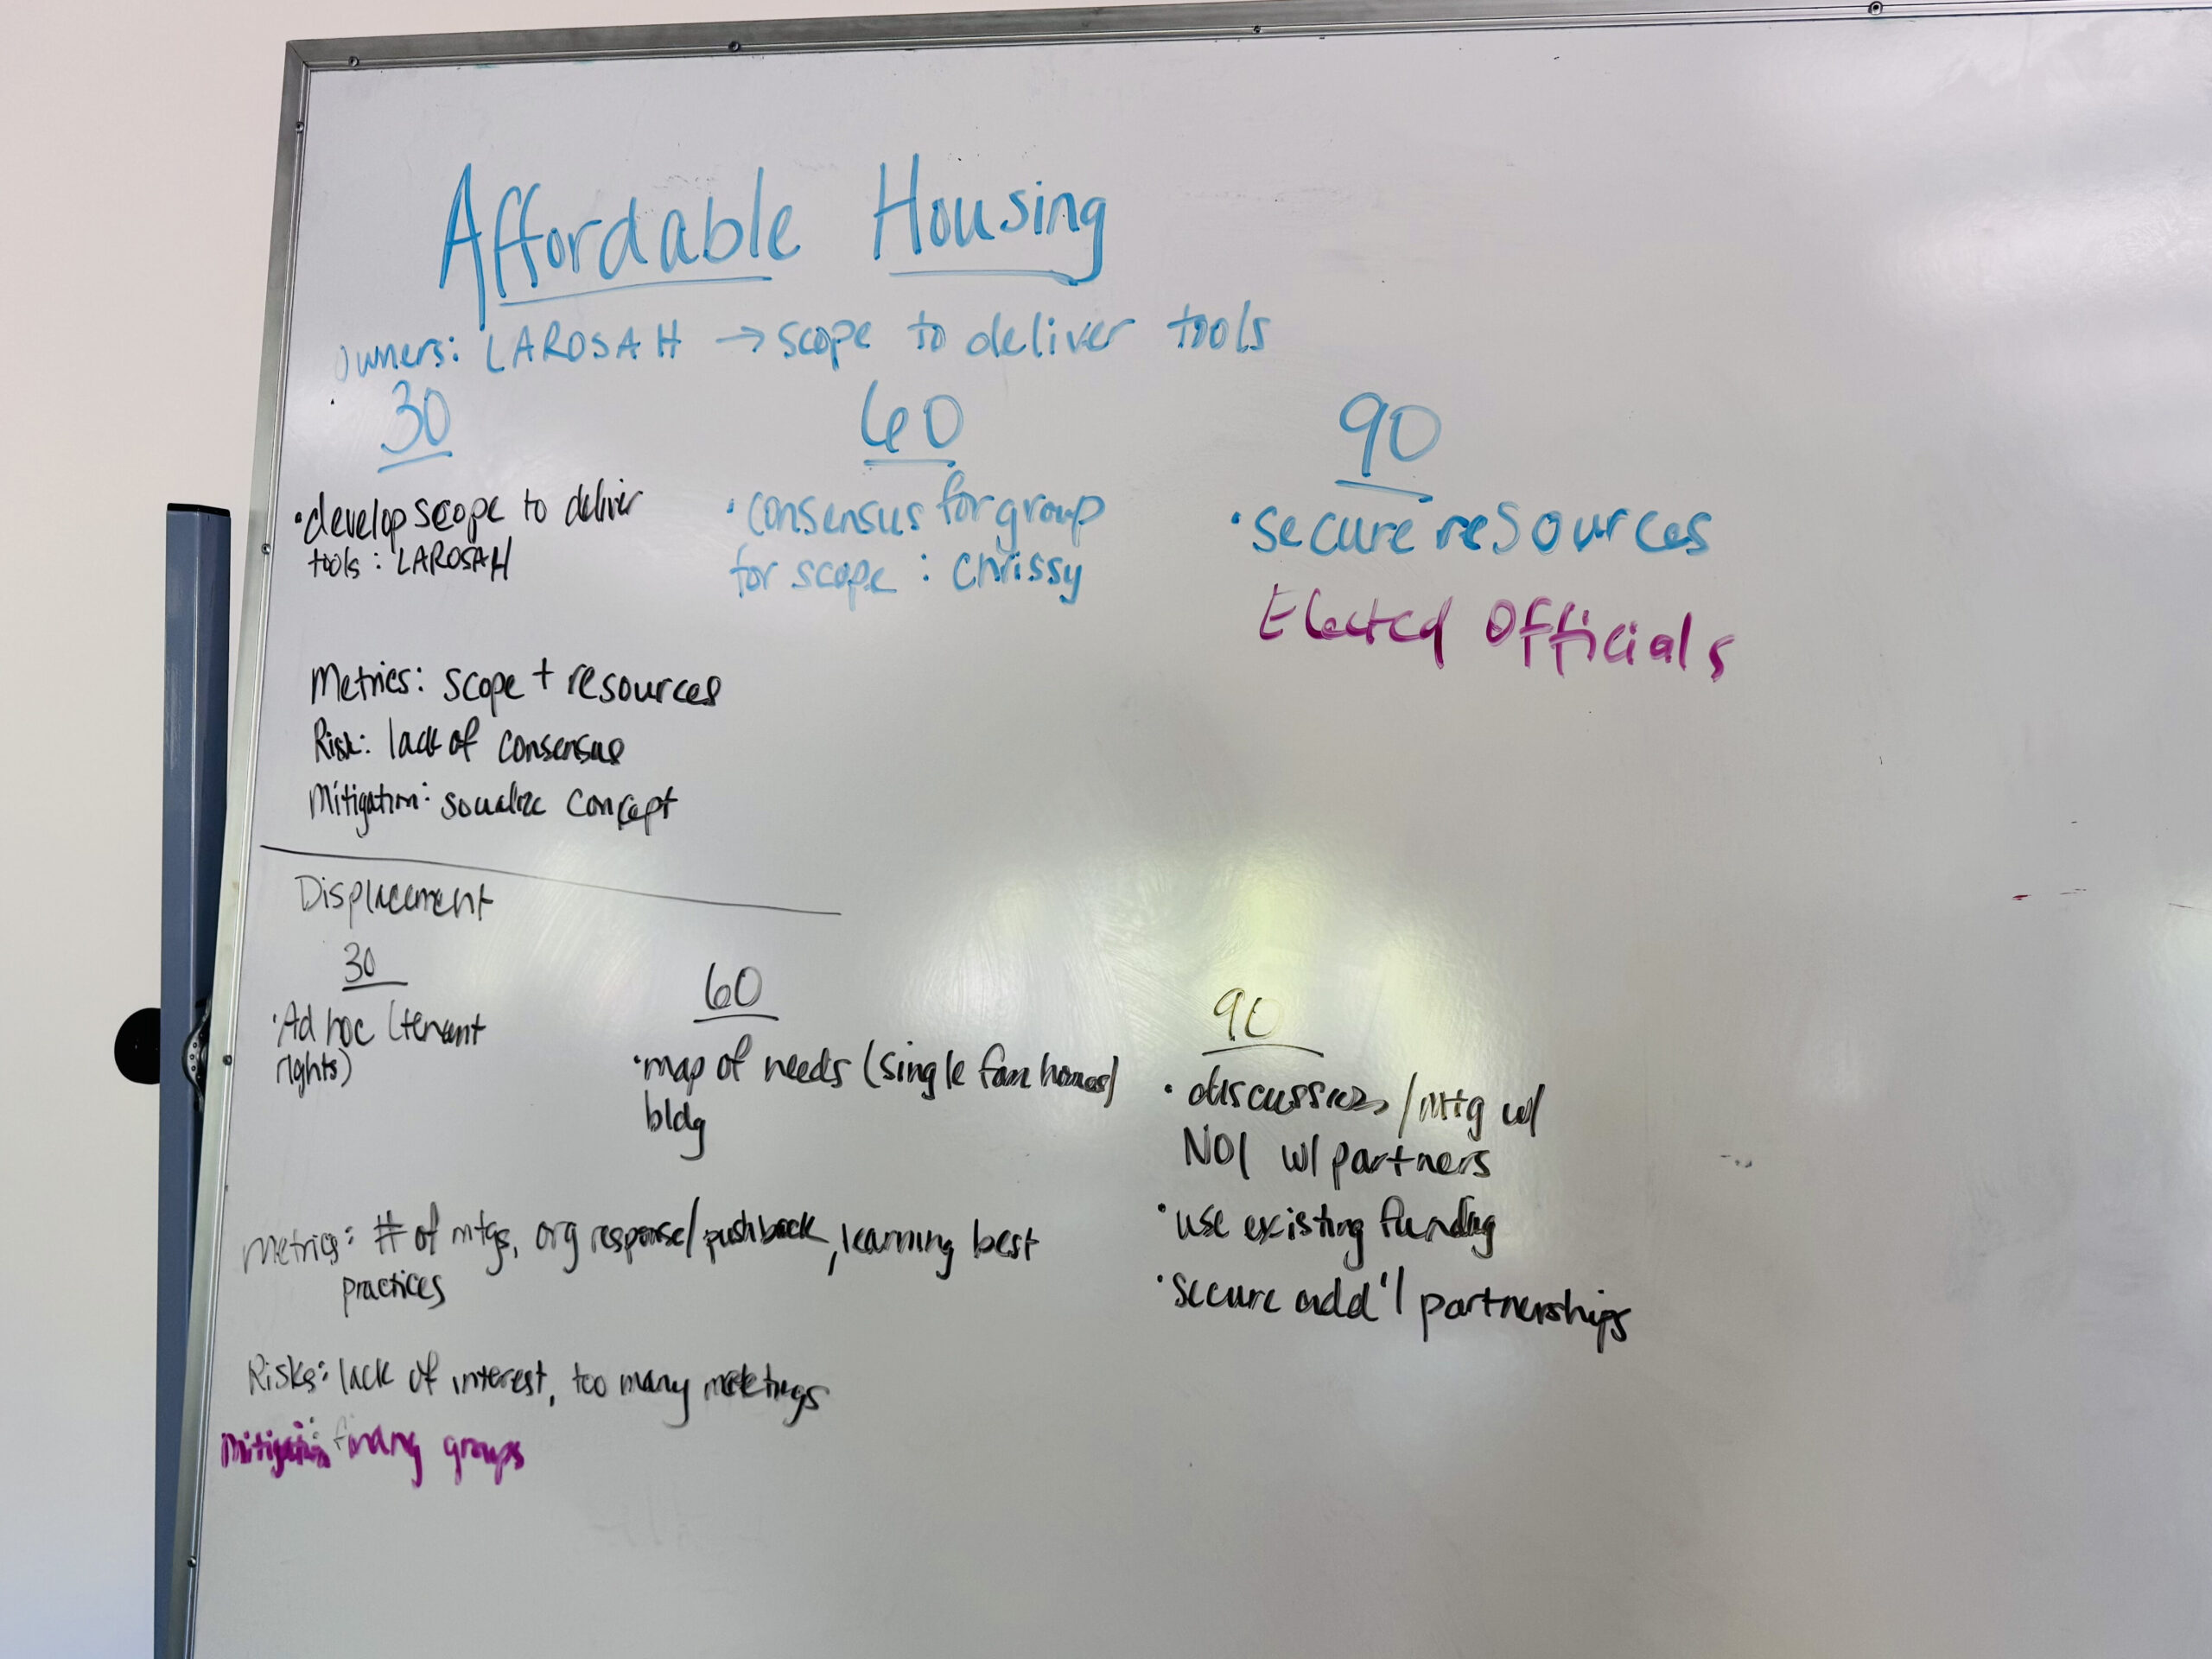 Affordable Housing
owners: LAROSAH → scope to deliver tools
30 60 90
• develop scope to deliver
tools : LAROSAH
• consensus for group
for scope : Chrissy
• secure resources
Elected Officials
Metrics: scope + resources
Risk: lack of consensus
Mitigation: socialize concept
Displacement
30
• Ad hoc (tenant
rights)
60
• map of needs (single fam homes)
bldg
90
• discussions / mtg w/
NOI w/ partners
• use existing funding
• secure add'l partnerships
metrics: # of mtgs, org response/pushback, learning best
practices
Risks: lack of interest, too many meetings
Mitigation: groups